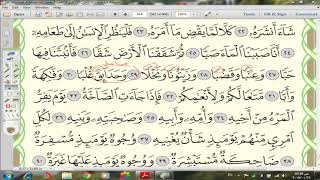 شَآءَ أَنشَرَهُۥ ٢٢ كَلَّا لَمَّا يَقْضِ مَآ أَمَرَهُۥ ٢٣ فَلْيَنظُرِ ٱلْإِنسَٰنُ إِلَىٰ طَعَامِهِۦٓ
٢٤ أَنَّا صَبَبْنَا ٱلْمَآءَ صَبًّا ٢٥ ثُمَّ شَقَقْنَا ٱلْأَرْضَ شَقًّا ٢٦ فَأَنۢبَتْنَا فِيهَا
حَبًّا ٢٧ وَعِنَبًا وَقَضْبًا ٢٨ وَزَيْتُونًا وَنَخْلًا ٢٩ وَحَدَآئِقَ غُلْبًا ٣٠ وَفَٰكِهَةً
وَأَبًّا ٣١ مَّتَٰعًا لَّكُمْ وَلِأَنْعَٰمِكُمْ ٣٢ فَإِذَا جَآءَتِ ٱلصَّآخَّةُ ٣٣ يَوْمَ يَفِرُّ
ٱلْمَرْءُ مِنْ أَخِيهِ ٣٤ وَأُمِّهِۦ وَأَبِيهِ ٣٥ وَصَٰحِبَتِهِۦ وَبَنِيهِ ٣٦ لِكُلِّ
ٱمْرِئٍ مِّنْهُمْ يَوْمَئِذٍ شَأْنٌ يُغْنِيهِ ٣٧ وُجُوهٌ يَوْمَئِذٍ مُّسْفِرَةٌ ٣٨
ضَاحِكَةٌ مُّسْتَبْشِرَةٌ ٣٩ وَوُجُوهٌ يَوْمَئِذٍ عَلَيْهَا غَبَرَةٌ ٤٠